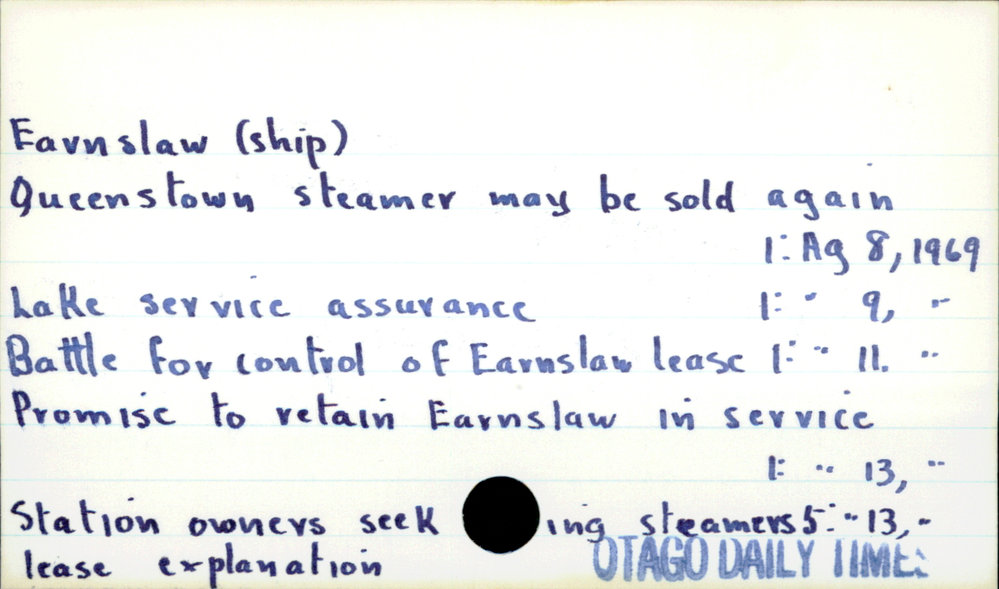 Earnslaw (ship)
Queenstown steamer may be sold again
1: Ag 8, 1969
Lake service assurance 1: " 9, "
Battle for control of Earnslaw lease 1: " 11. "
Promise to retain Earnslaw in service
1: " 13, "
Station owners seek ing steamers 5: " 13, "
lease explanation
OTAGO DAILY TIMES